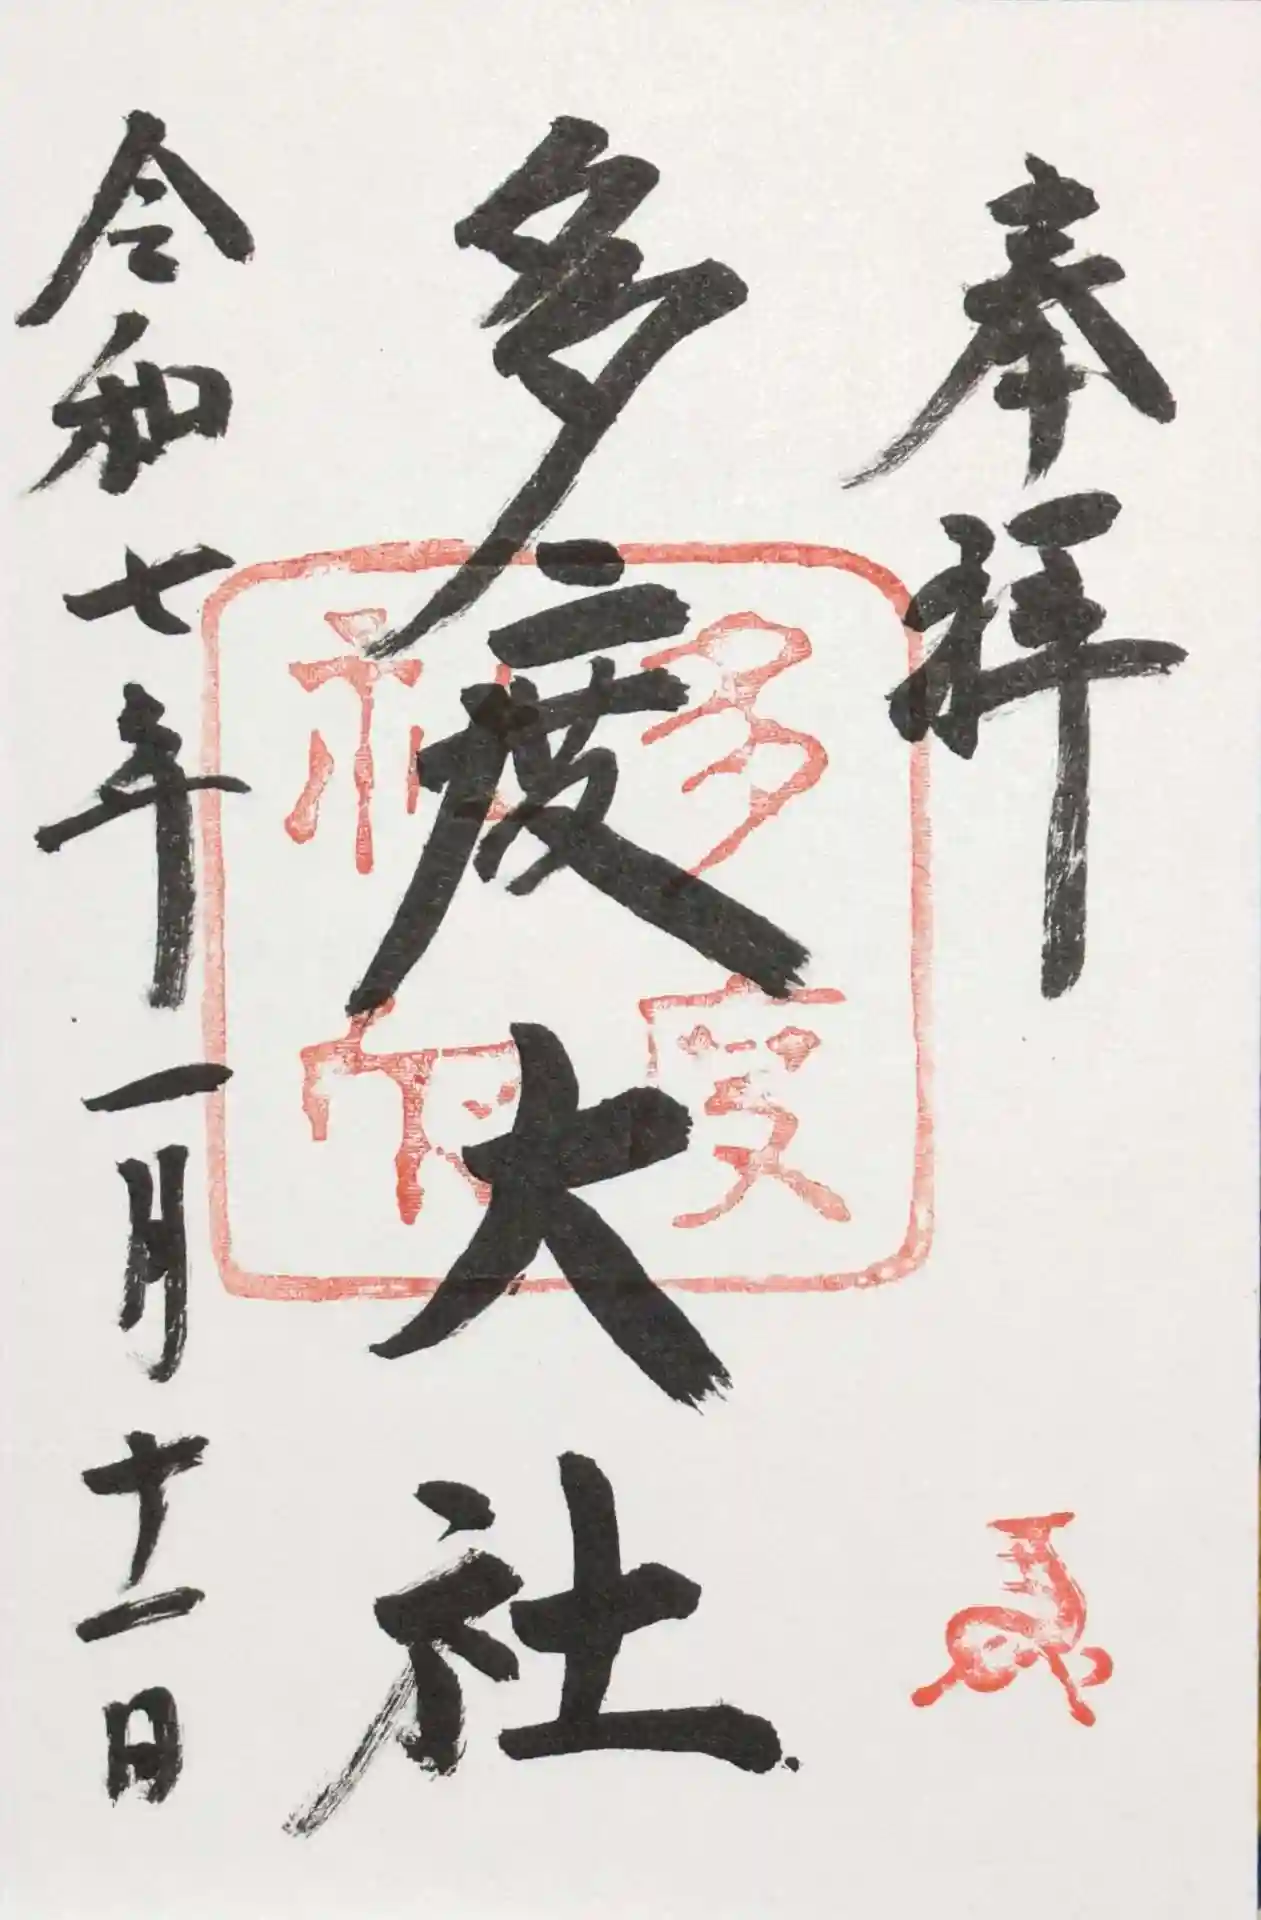 奉拝
多度大社
令和七年一月十一日
多度
神社